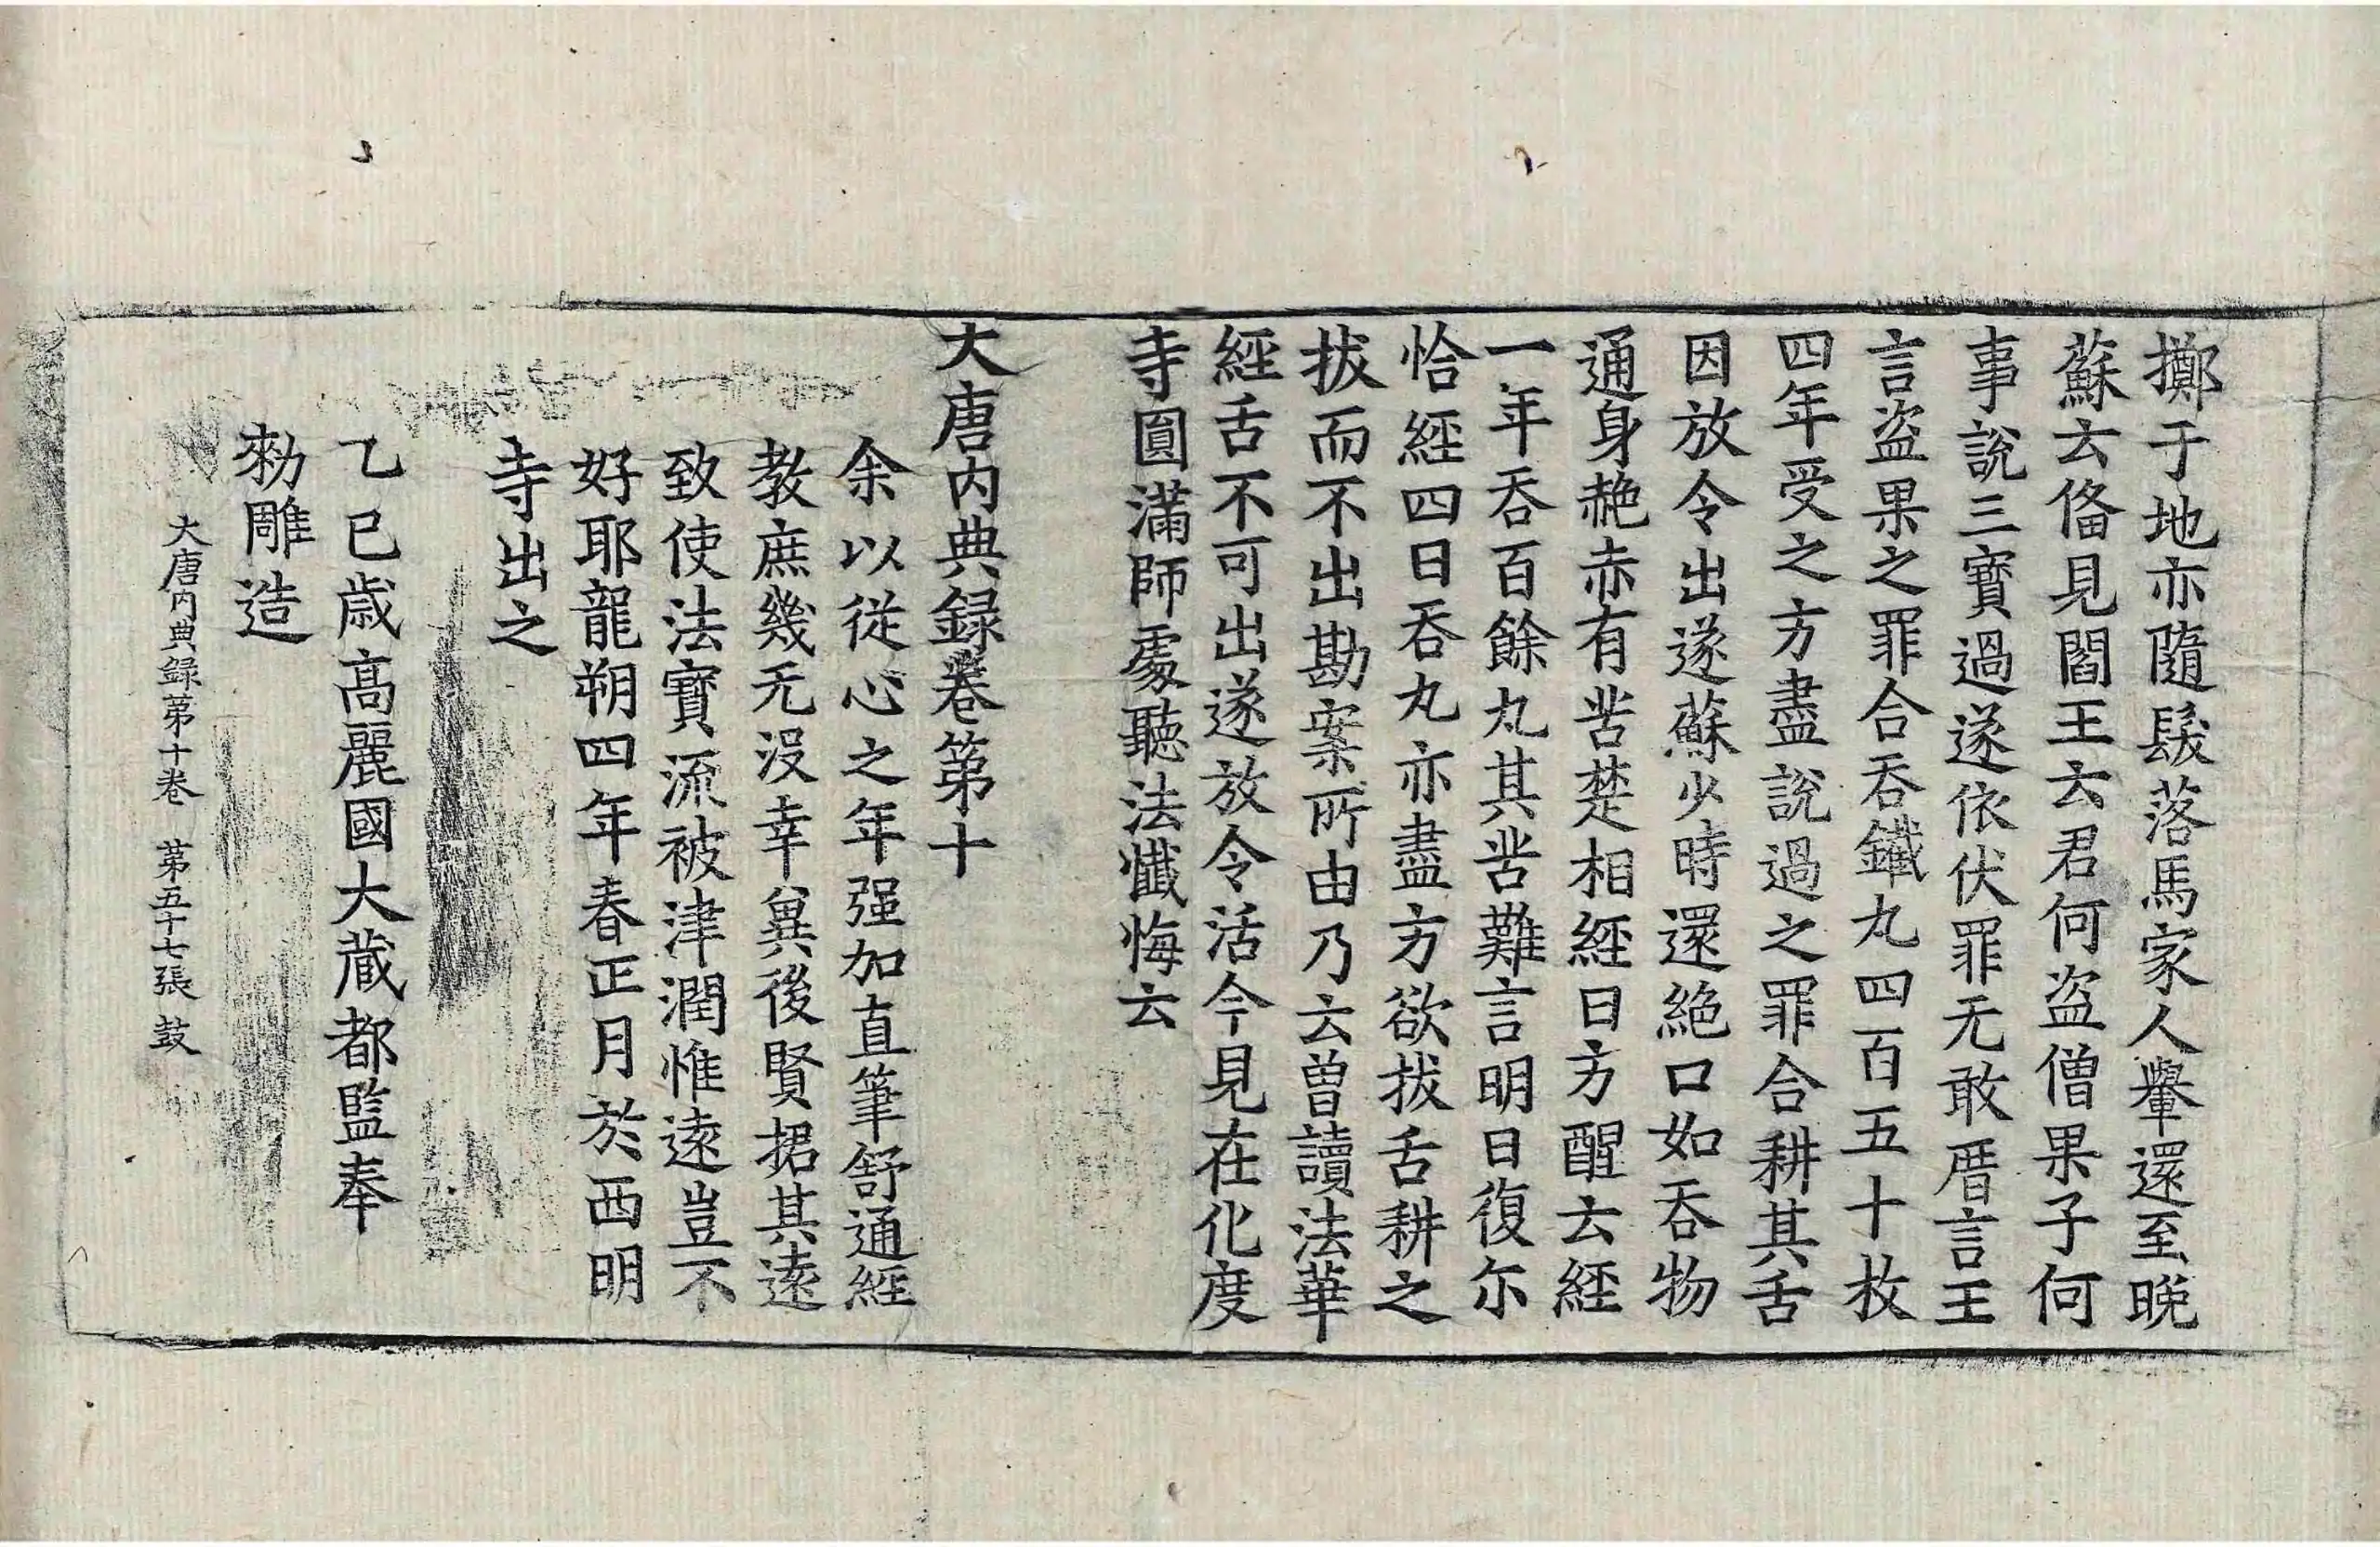 擲于地亦隨鬉落馬家人轝還至晚
蘇云俻見閻王云君何盜僧果子何
事說三寶過遂依伏罪无敢厝言王
言盜果之罪合吞鐵丸四百五十枚
四年受之方盡說過之罪合耕其舌
因放令出遂蘇少時還絕口如吞物
通身赩赤有苦楚相經日方醒云經
一年吞百餘丸其苦難言明日復尓
恰經四日吞丸亦盡方欲拔舌耕之
拔而不出勘案所由乃云曽讀法華
經舌不可出遂放令活今見在化度
寺圓滿師處聽法懺悔云
大唐內典録卷第十
余以從心之年强加直筆舒通經
教庶幾无沒幸冀後賢捃其遠
致使法寶流被津潤惟遠豈不
好耶龍朔四年春正月於西明
寺出之
乙巳歲高麗國大藏都監奉
勑雕造
大唐內典録第十卷 第五十七張 鼓